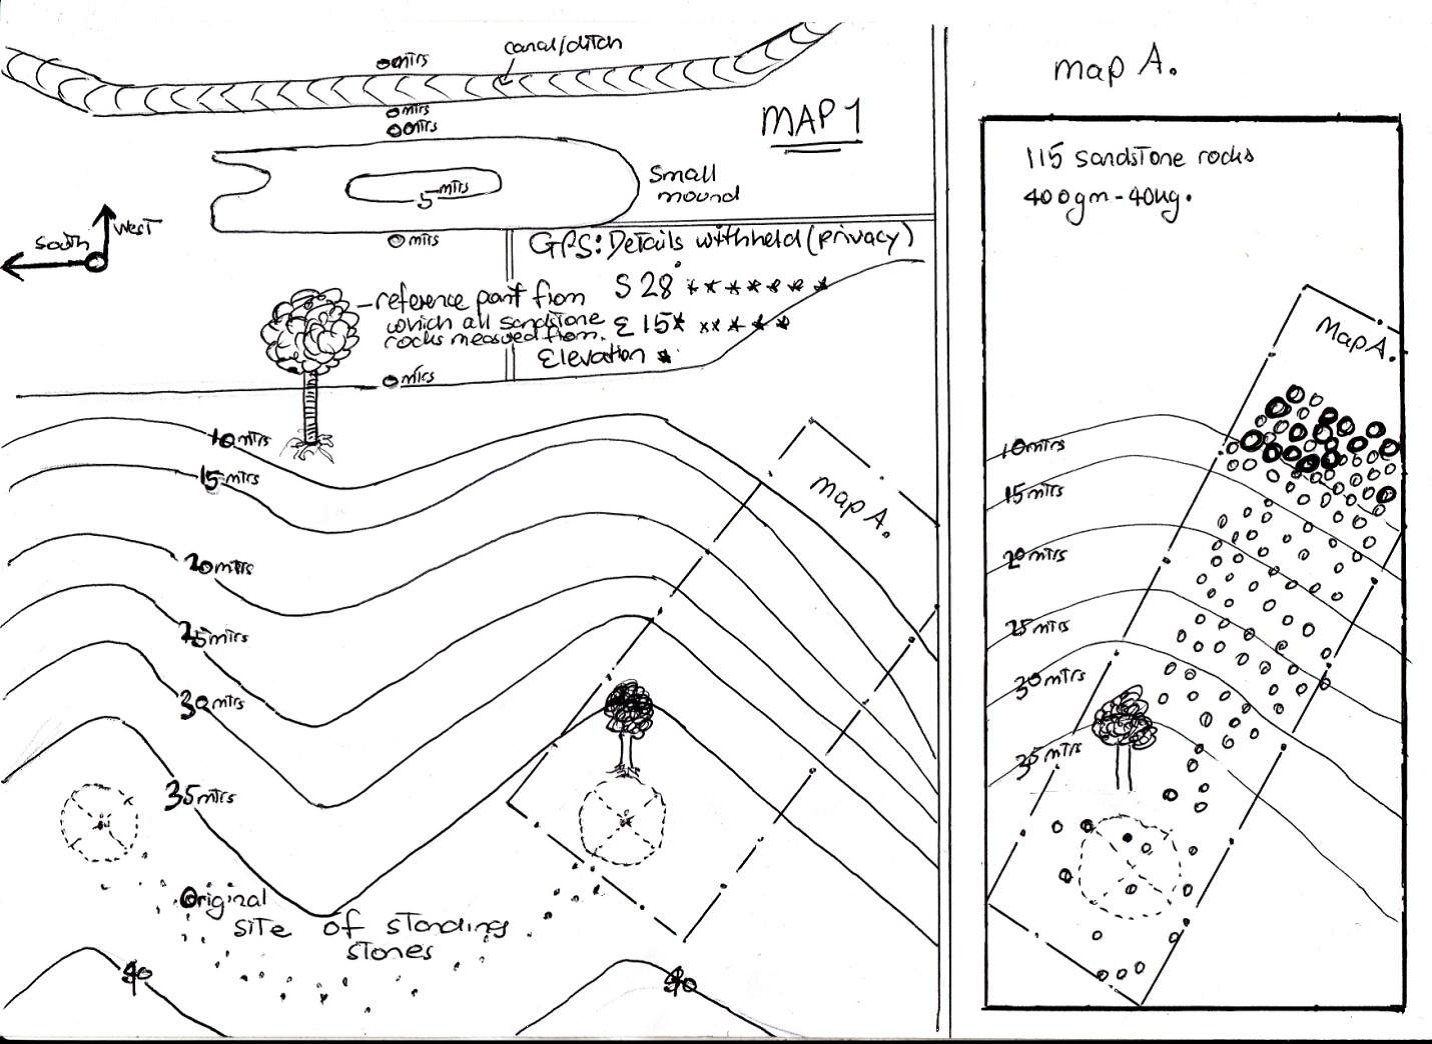 0mtrs
canal/ditch
0mtrs
0mtrs
MAP 1
5mtrs
Small
mound
West
South
0mtrs
GPS: Details withheld (privacy)
S 28° *******
E 15* *****
Elevation *
reference point from
which all sandstone
rocks measured from.
0mtrs
10mtrs
15mtrs
20mtrs
25mtrs
30mtrs
35mtrs
Map A.
Original
site of standing
stones
40
40
map A.
115 sandstone rocks
400gm-40kg.
Map A.
10mtrs
15mtrs
20mtrs
25mtrs
30mtrs
35mtrs